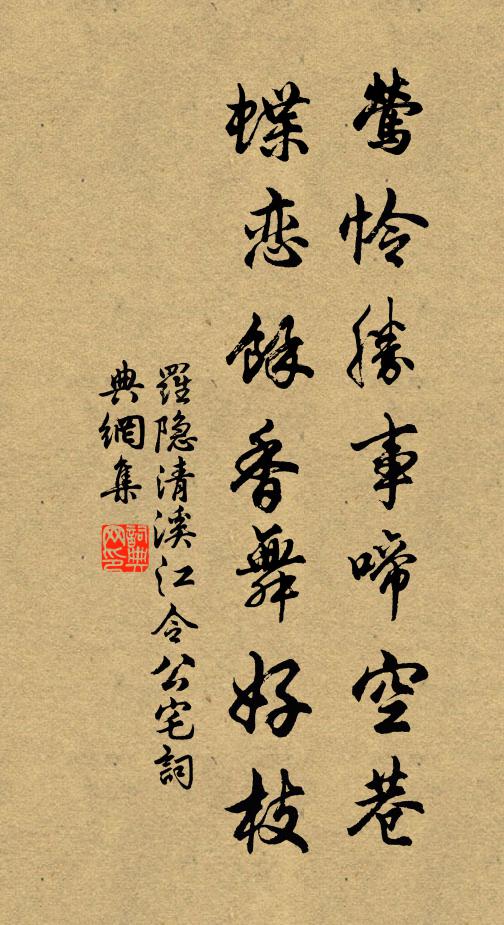 鶯憐勝事啼空巷
蝶恋餘香舞好枝
羅隐清溪江令公宅詞
典網集
詞典网印